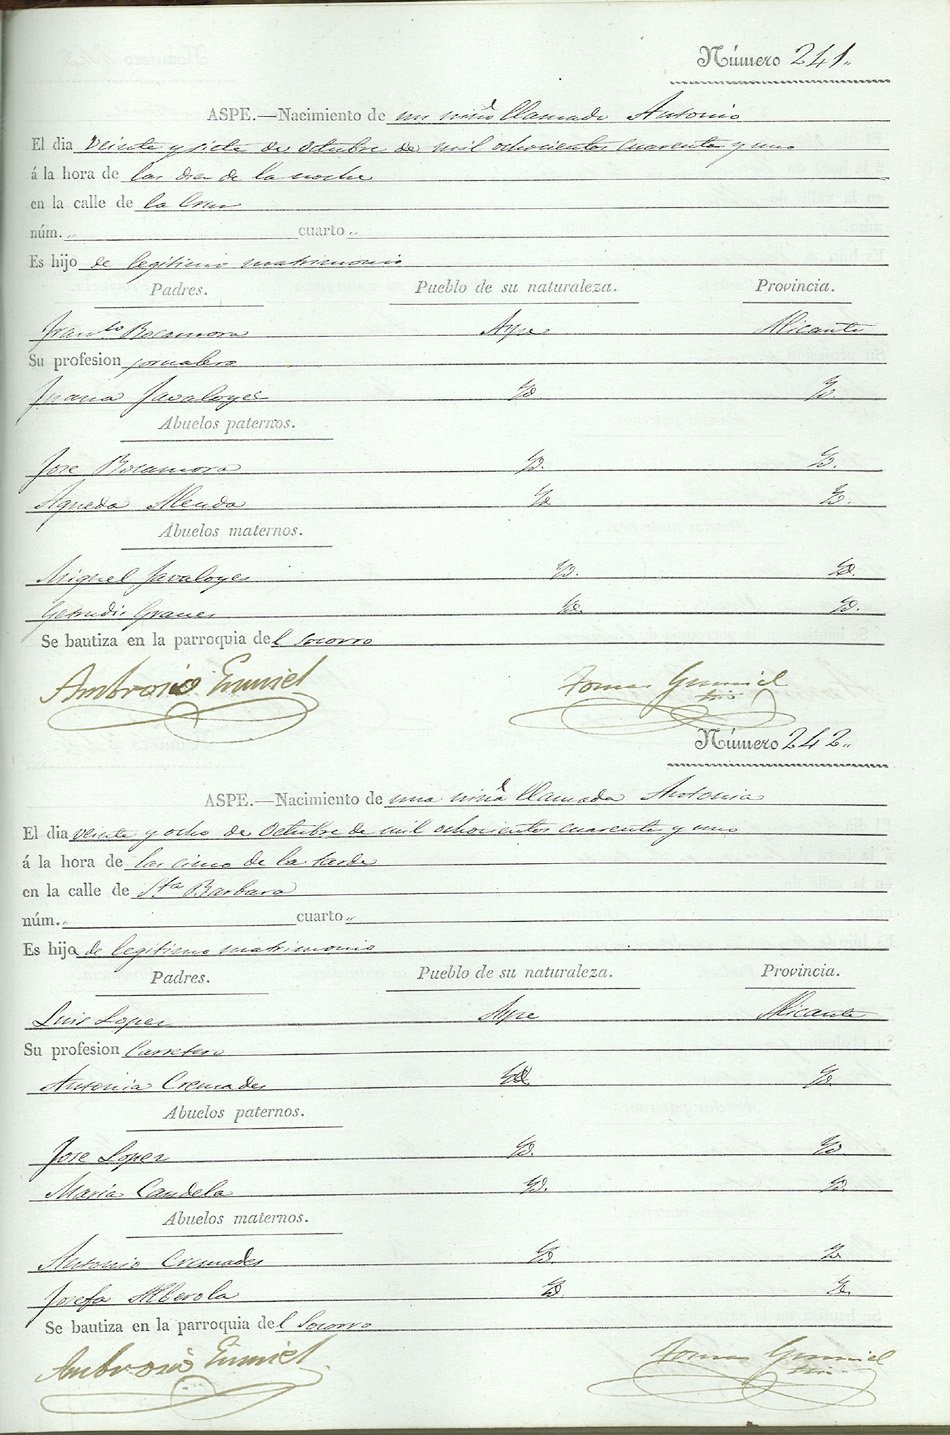 Número 241.
ASPE.—Nacimiento de un niño llamado Antonio
El dia veinte y siete de Octubre de mil ochocientos cuarenta y uno
á la hora de las dies de la noche
en la calle de la Cruz
núm. " cuarto "
Es hijo de legitimo matrimonio
Padres. Pueblo de su naturaleza. Provincia.
Fran.co Bocamora Aspe Alicante
Su profesion jornalero
Juana Javaloyes Yd Yd
Abuelos paternos.
Jose Bocamora Yd. Yd.
Agueda Alenda Yd Yd.
Abuelos maternos.
Miguel Javaloyes Yd. Yd.
Getrudis Yd. Yd.
Se bautiza en la parroquia del Socorro
Ambrosio Gumiel Tomas Gumiel
Número 242.
ASPE.—Nacimiento de una niña llamada Antonia
El dia veinte y ocho de Octubre de mil ochocientos cuarenta y uno
á la hora de las cinco de la tarde
en la calle de Sta Barbara
núm. " cuarto "
Es hijo de legitimo matrimonio
Padres. Pueblo de su naturaleza. Provincia.
Luis Lopez Aspe Alicante
Su profesion Carretero
Antonia Cremades Yd. Yd.
Abuelos paternos.
Jose Lopez Yd. Yd.
Maria Candela Yd. Yd.
Abuelos maternos.
Antonio Cremades Yd. Yd.
Josefa Alberola Yd. Yd.
Se bautiza en la parroquia del Socorro
Ambrosio Gumiel Tomas Gumiel